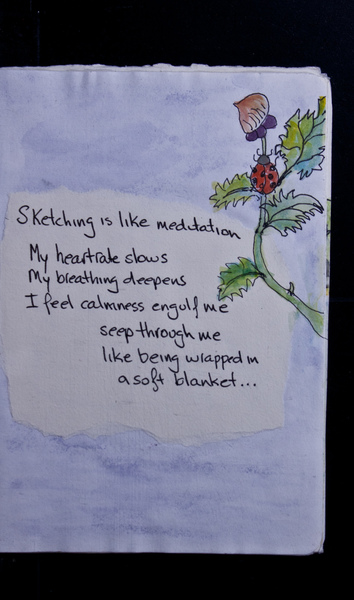 Sketching is like meditation
My heartrate slows
My breathing deepens
I feel calmness engulf me
seep through me
like being wrapped in
a soft blanket...